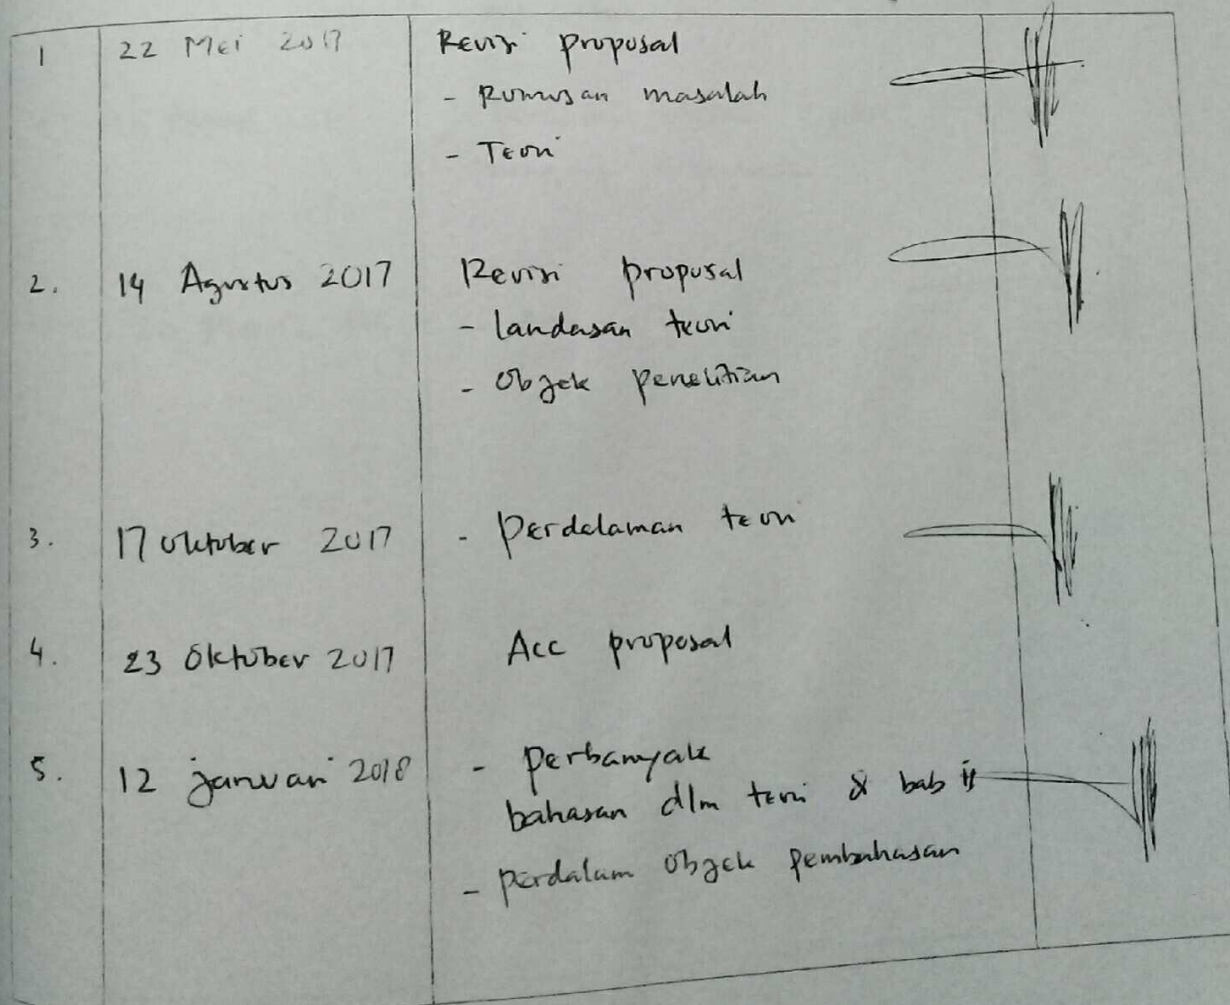 1 22 Mei 2017 Revisi proposal
- Rumusan masalah
- Teori
2. 14 Agustus 2017 Revisi proposal
- landasan teori
- Objek penelitian
3. 17 Oktober 2017 - Perdalaman teori
4. 23 Oktober 2017 Acc proposal
5. 12 januari 2018 - Perbanyak
bahasan dlm teori & bab ii
- Perdalam Objek pembahasan